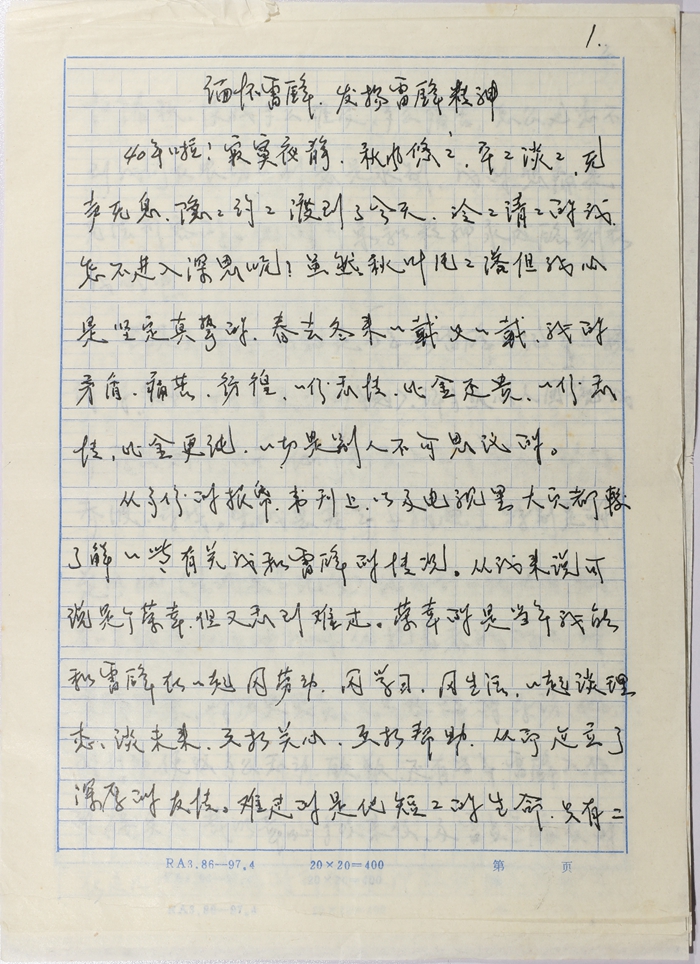 1.
缅怀雷锋.发扬雷锋精神
40年啦!寂寞夜静.秋水悠々.平々淡々.无
声无息.隐々约々渡到了今天.冷々清々的我.
怎不进入深思呢?虽然秋叶凡々落但我心
是坚定真挚的.春去冬来一载又一载.我的
矛盾.痛苦.彷徨.一份感情.比金还贵.一份感
情,比金更纯.一切是别人不可思议的。
从多份的报纸.书刊上.以及电视里大家都较
了解一些有关我和雷锋的情况。从我来说可
说是个荣幸.但又感到难过。荣幸的是当年我能
和雷锋在一起同劳动.同学习.同生活,一起谈理
想.谈未来.互相关心.互相帮助.从而建立了
深厚的友情。难过的是他短々的生命.只有二
RA3.86—97.4 20×20=400 第 页